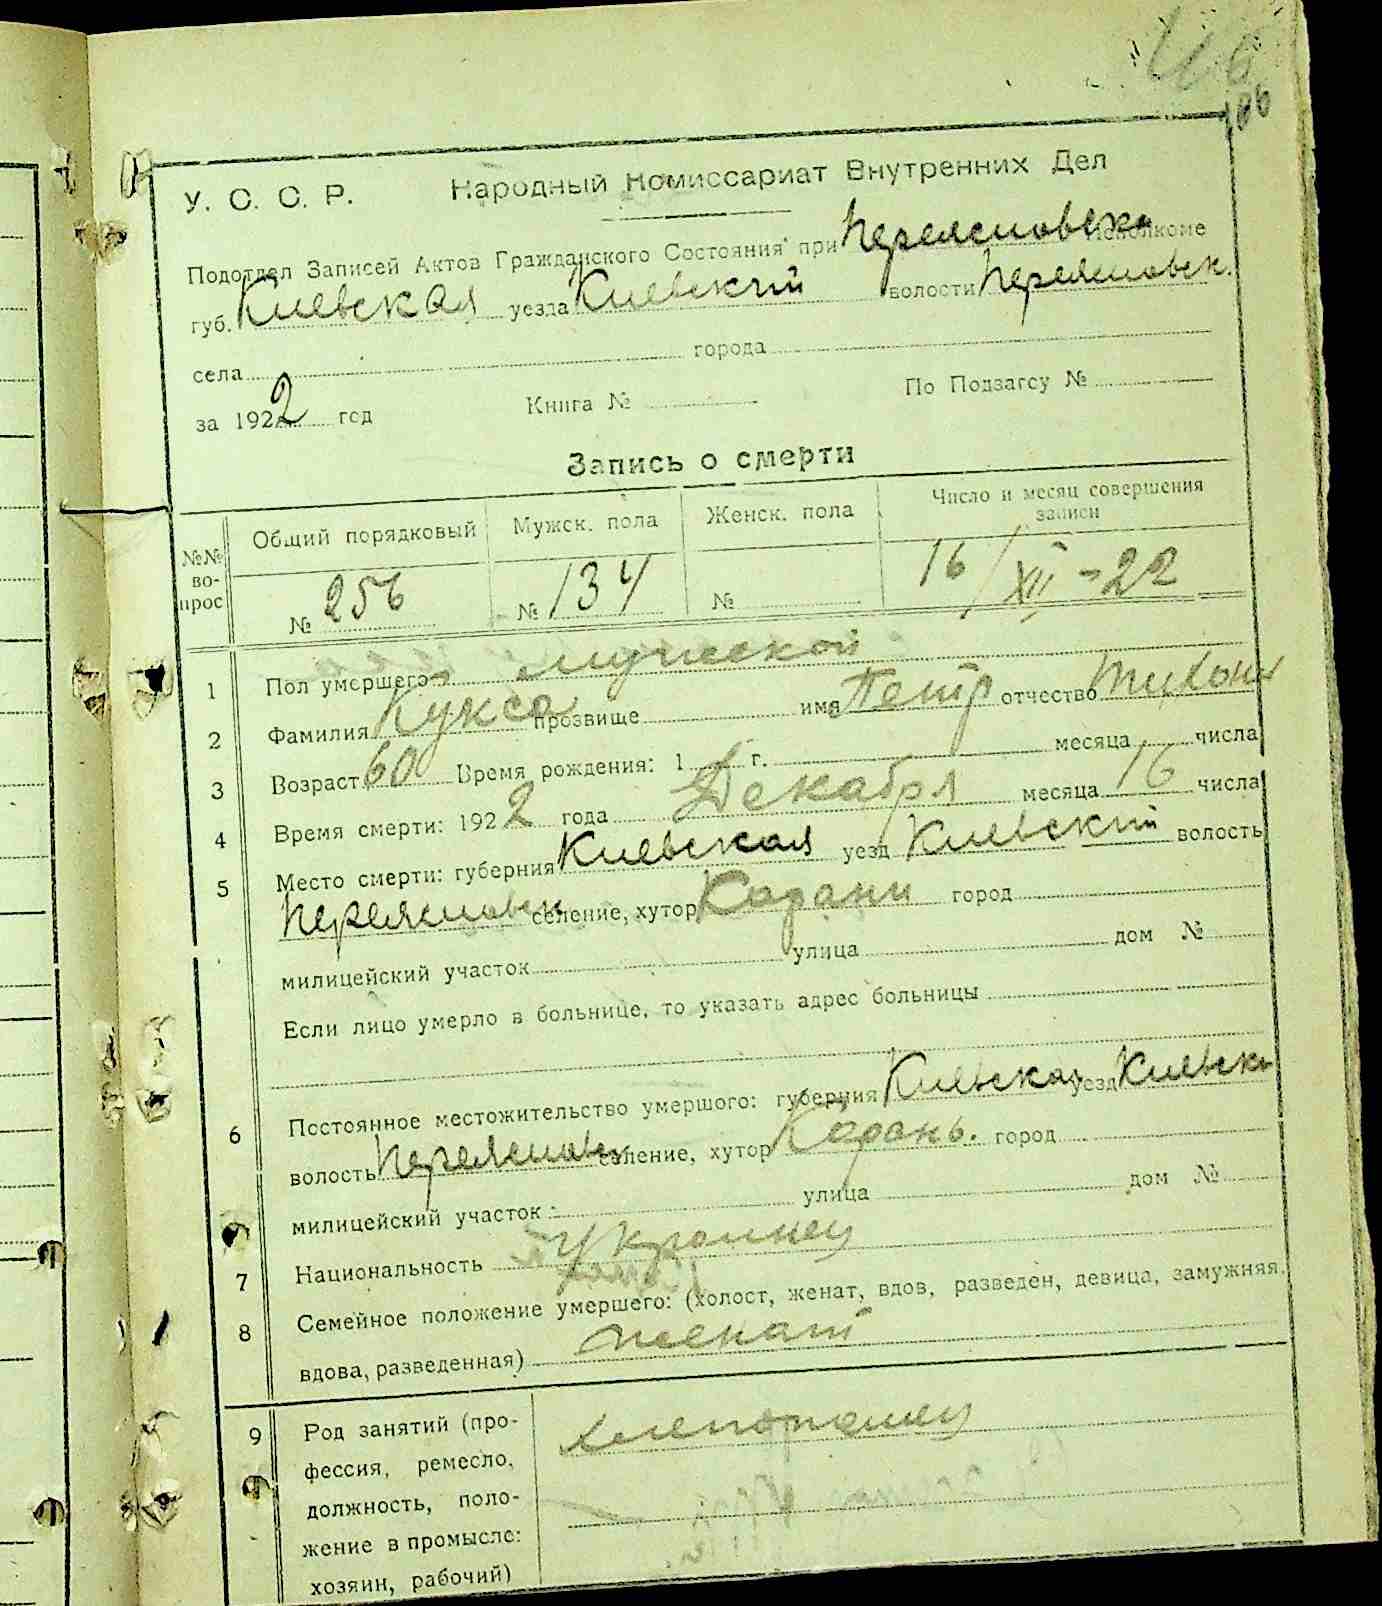 106
У. С. С. Р. Народный Комиссариат Внутренних Дел
Подотдел Записей Актов Гражданского Состояния при Исполкоме
губ. Киевская уезда Киевский волости
села города
за 1922 год Книга № По Подзагсу №
Запись о смерти
№№ во- прос Общий порядковый Мужск. пола Женск. пола Число и месяц совершения записи
№ 256 № 134 № 16/XII-22
1 Пол умершего мужеской
2 Фамилия Кукса прозвище имя Петр отчество Тихонов
3 Возраст 60 Время рождения: 1 г. месяца числа
4 Время смерти: 1922 года Декабря месяца 16 числа
5 Место смерти: губерния Киевская уезд Киевский волость
селение, хутор Карани город
милицейский участок улица дом №
Если лицо умерло в больнице, то указать адрес больницы
6 Постоянное местожительство умершого: губерния Киевская уезд Киевск
волость селение, хутор Карань. город
милицейский участок: улица дом №
7 Национальность Украинец
8 Семейное положение умершего: (холост, женат, вдов, разведен, девица, замужняя.
вдова, разведенная) женат
9 Род занятий (про- хлепопашец
фессия, ремесло,
должность, поло-
жение в промысле:
хозяин, рабочий)